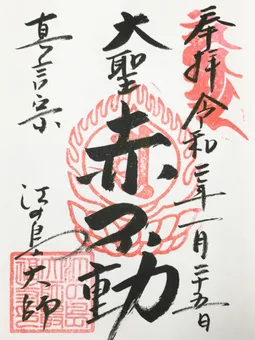 奉拝 令和二年一月二十五日
大聖 赤不動
真言宗 江の島大師